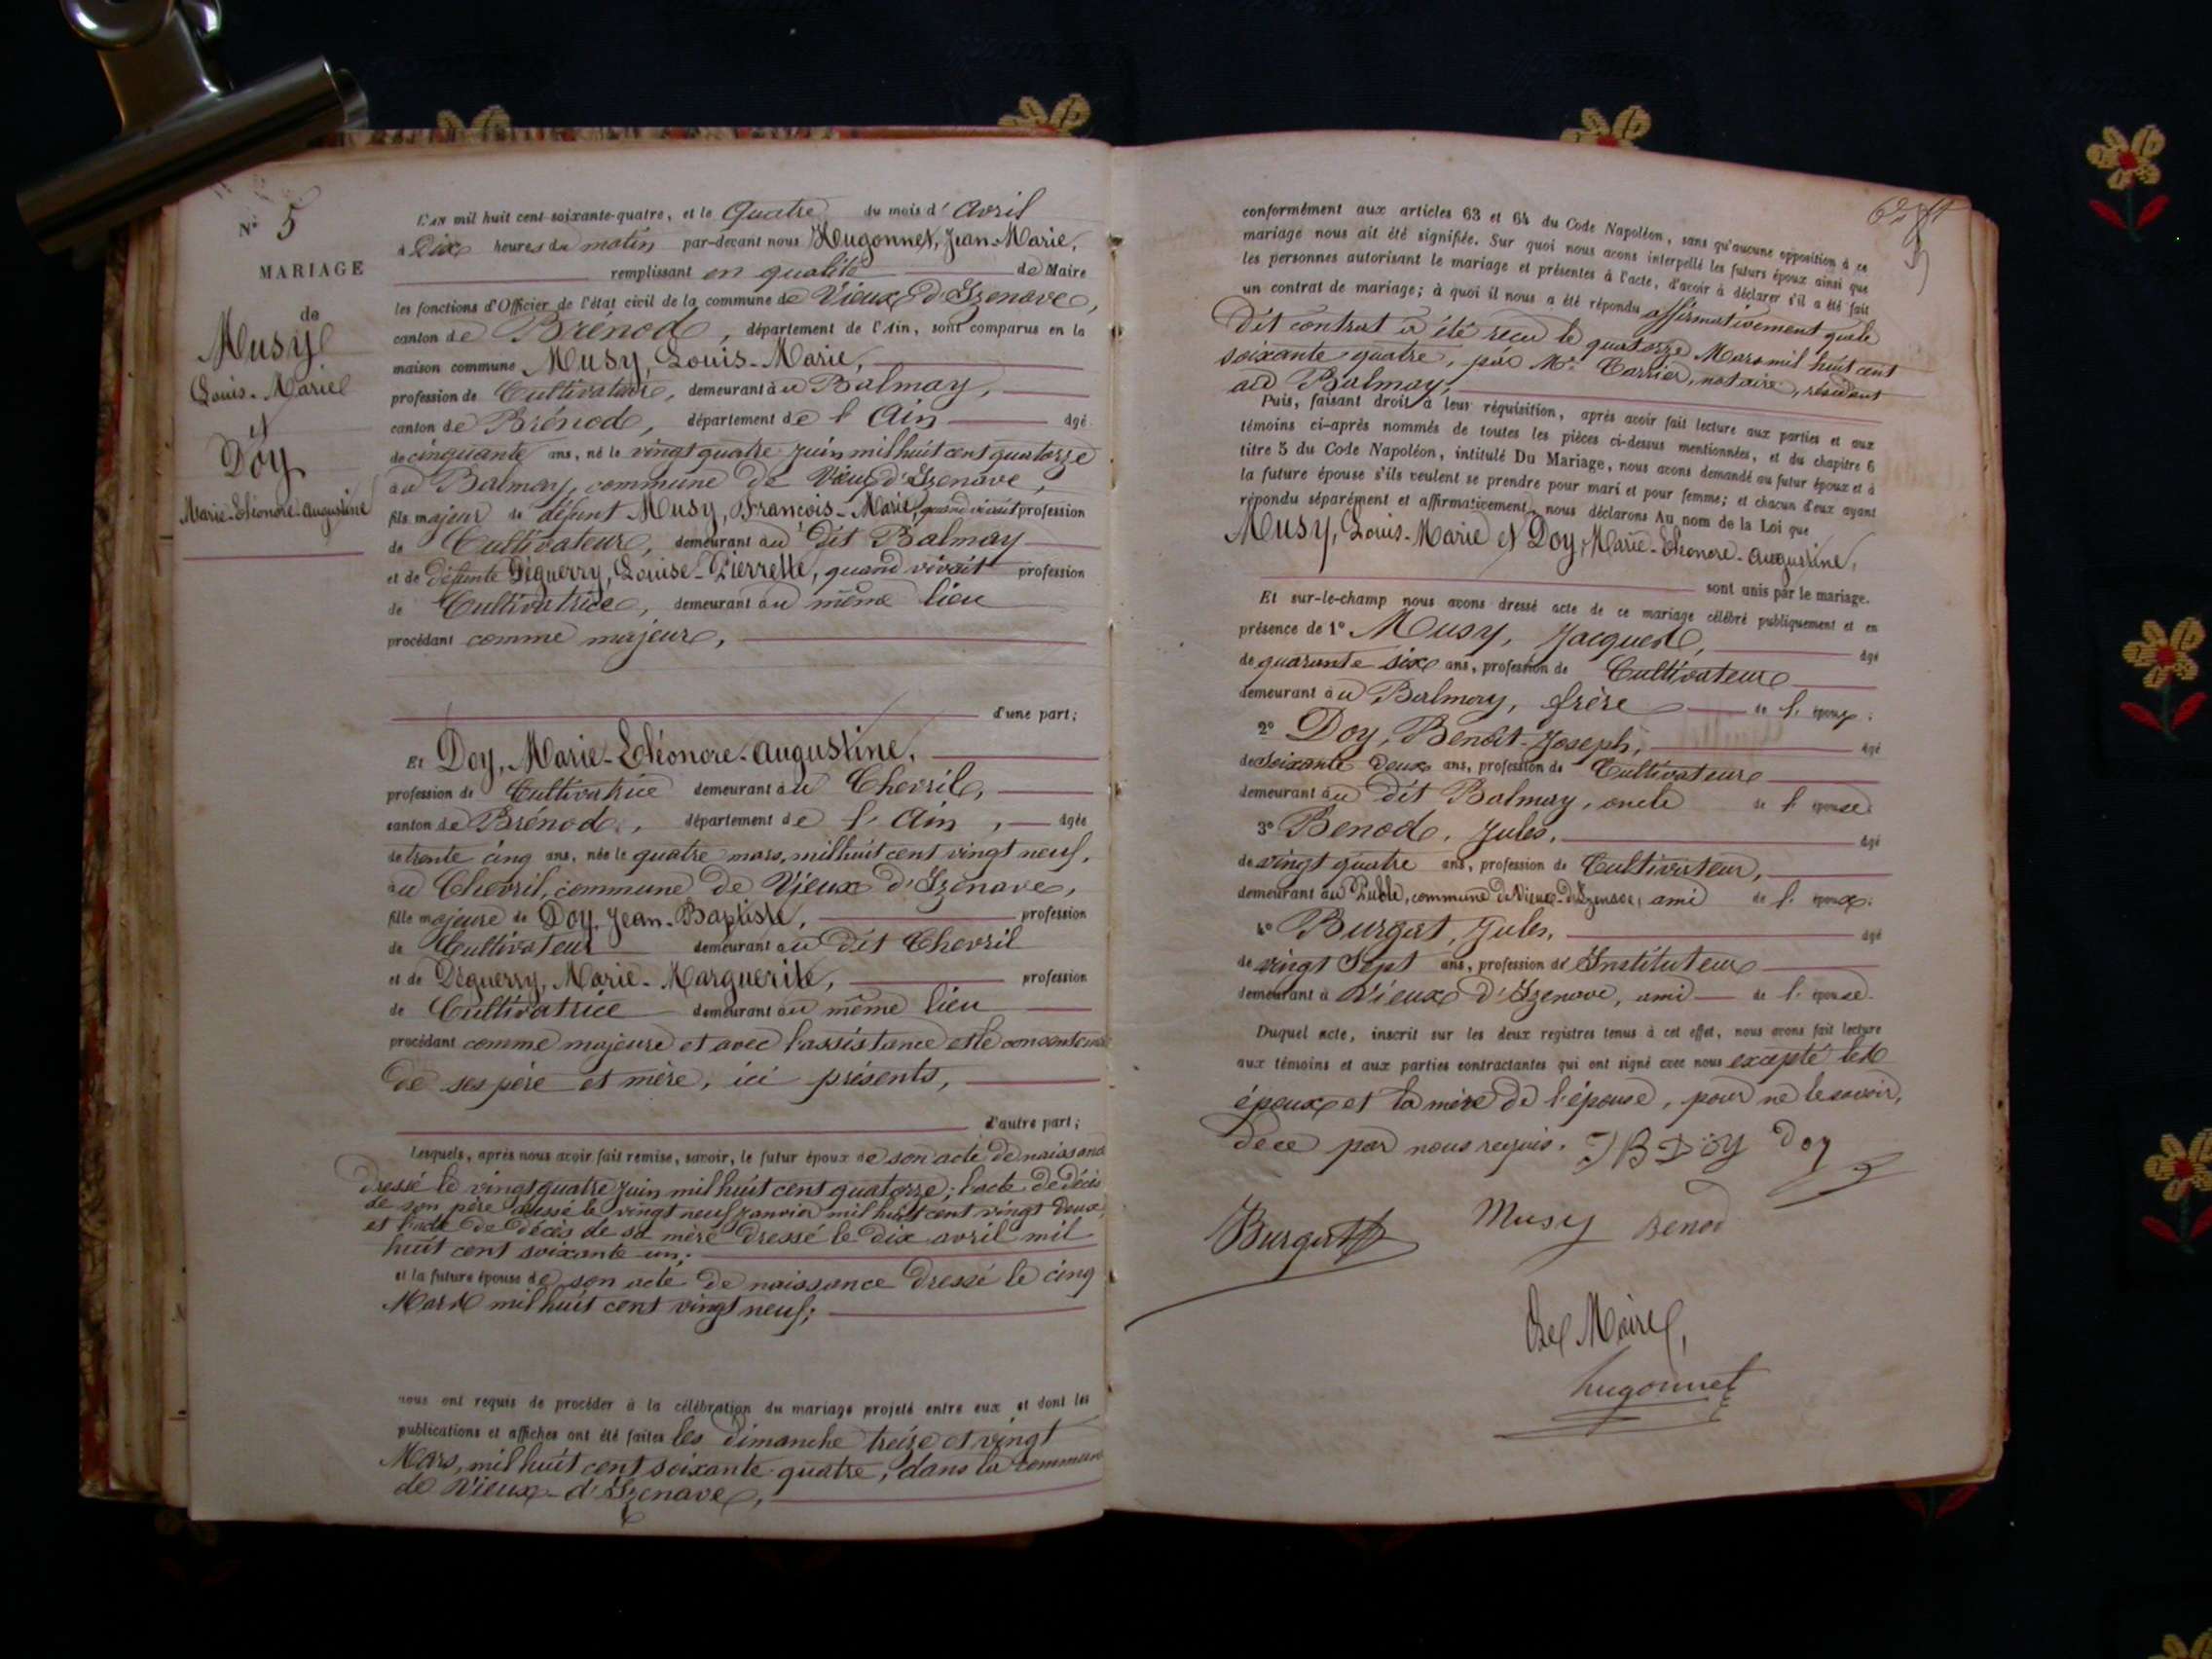 N° 5
MARIAGE
de
Musy
Louis-Marie
et
Doy
Marie-Eléonore-Augustine
L'AN mil huit cent soixante-quatre, et le Quatre du mois d'Avril
à Dix heures du matin par-devant nous Hugonnet, Jean-Marie,
remplissant en qualité de Maire
les fonctions d'Officier de l'état civil de la commune de Vieux d'Izenave,
canton de Brénod, département de l'Ain, sont comparus en la
maison commune Musy, Louis-Marie,
profession de Cultivateur, demeurant au Balmay,
canton de Brénod, département de l'Ain âgé
de cinquante ans, né le vingt quatre Juin mil huit cent quatorze
au Balmay, commune de Vieux d'Izenave,
fils majeur de défunt Musy, François-Marie, quand vivait profession
de Cultivateur, demeurant au dit Balmay
et de défunte Déguerry, Louise-Pierrette, quand vivait profession
de Cultivatrice, demeurant au même lieu
procédant comme majeur,
d'une part;
Et Doy, Marie-Eléonore-Augustine,
profession de Cultivatrice demeurant au Chevril,
canton de Brénod, département de l'Ain, âgée
de trente cinq ans, née le quatre mars, mil huit cent vingt neuf,
au Chevril, commune de Vieux d'Izenave,
fille majeure de Doy, Jean-Baptiste, profession
de Cultivateur demeurant au dit Chevril
et de Déguerry, Marie-Marguerite, profession
de Cultivatrice demeurant au même lieu
procédant comme majeure et avec l'assistance et le consentement
de ses père et mère, ici présents,
d'autre part;
Lesquels, après nous avoir fait remise, savoir, le futur époux de son acte de naissance
dressé le vingt quatre Juin mil huit cent quatorze; l'acte de décès
de son père dressé le vingt neuf Janvier mil huit cent vingt deux,
et l'acte de décès de sa mère dressé le dix avril mil
huit cent soixante un;
et la future épouse de son acte de naissance dressé le cinq
Mars mil huit cent vingt neuf;
nous ont requis de procéder à la célébration du mariage projeté entre eux et dont les
publications et affiches ont été faites les dimanche treize et vingt
Mars, mil huit cent soixante quatre, dans la commune
de Vieux-d'Izenave,
conformément aux articles 63 et 64 du Code Napoléon, sans qu'aucune opposition à ce
mariage nous ait été signifiée. Sur quoi nous avons interpellé les futurs époux ainsi que
les personnes autorisant le mariage et présentes à l'acte, d'avoir à déclarer s'il a été fait
un contrat de mariage; à quoi il nous a été répondu affirmativement que le
dit contrat a été reçu le quatorze Mars mil huit cent
soixante quatre, par Me Carrier, notaire, résidant
au Balmay,
Puis, faisant droit à leur réquisition, après avoir fait lecture aux parties et aux
témoins ci-après nommés de toutes les pièces ci-dessus mentionnées, et du chapitre 6
titre 5 du Code Napoléon, intitulé Du Mariage, nous avons demandé au futur époux et à
la future épouse s'ils veulent se prendre pour mari et pour femme; et chacun d'eux ayant
répondu séparément et affirmativement, nous déclarons Au nom de la Loi que
Musy, Louis-Marie et Doy, Marie-Eléonore-Augustine,
sont unis par le mariage.
Et sur-le-champ nous avons dressé acte de ce mariage célébré publiquement et en
présence de 1° Musy, Jacques, âgé
de quarante six ans, profession de Cultivateur
demeurant au Balmay, frère de l'époux;
2° Doy, Benoît-Joseph, âgé
de soixante deux ans, profession de Cultivateur
demeurant au dit Balmay, oncle de l'épouse.
3° Benod, Jules, âgé
de vingt quatre ans, profession de Cultivateur,
demeurant au commune de Vieux-d'Izenave, ami de l'époux.
4° Burgat, Jules, âgé
de vingt Sept ans, profession d'Instituteur
demeurant à Vieux d'Izenave, ami de l'épouse.
Duquel acte, inscrit sur les deux registres tenus à cet effet, nous avons fait lecture
aux témoins et aux parties contractantes qui ont signé avec nous excepté les
époux et la mère de l'épouse, pour ne le savoir,
de ce par nous requis. JB Doy Doy
Burgat Musy Benod
Le Maire,
hugonnet